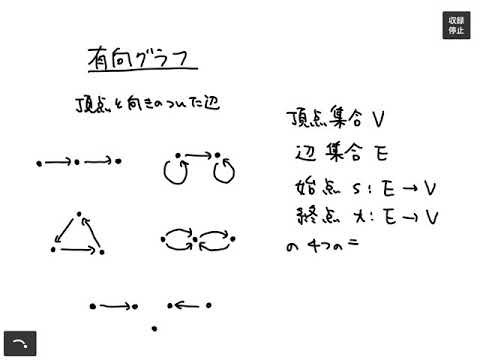 有向グラフ
頂点と向きのついた辺
頂点集合 V
辺集合 E
始点 s : E → V
終点 t : E → V
の4つの二
収録
停止